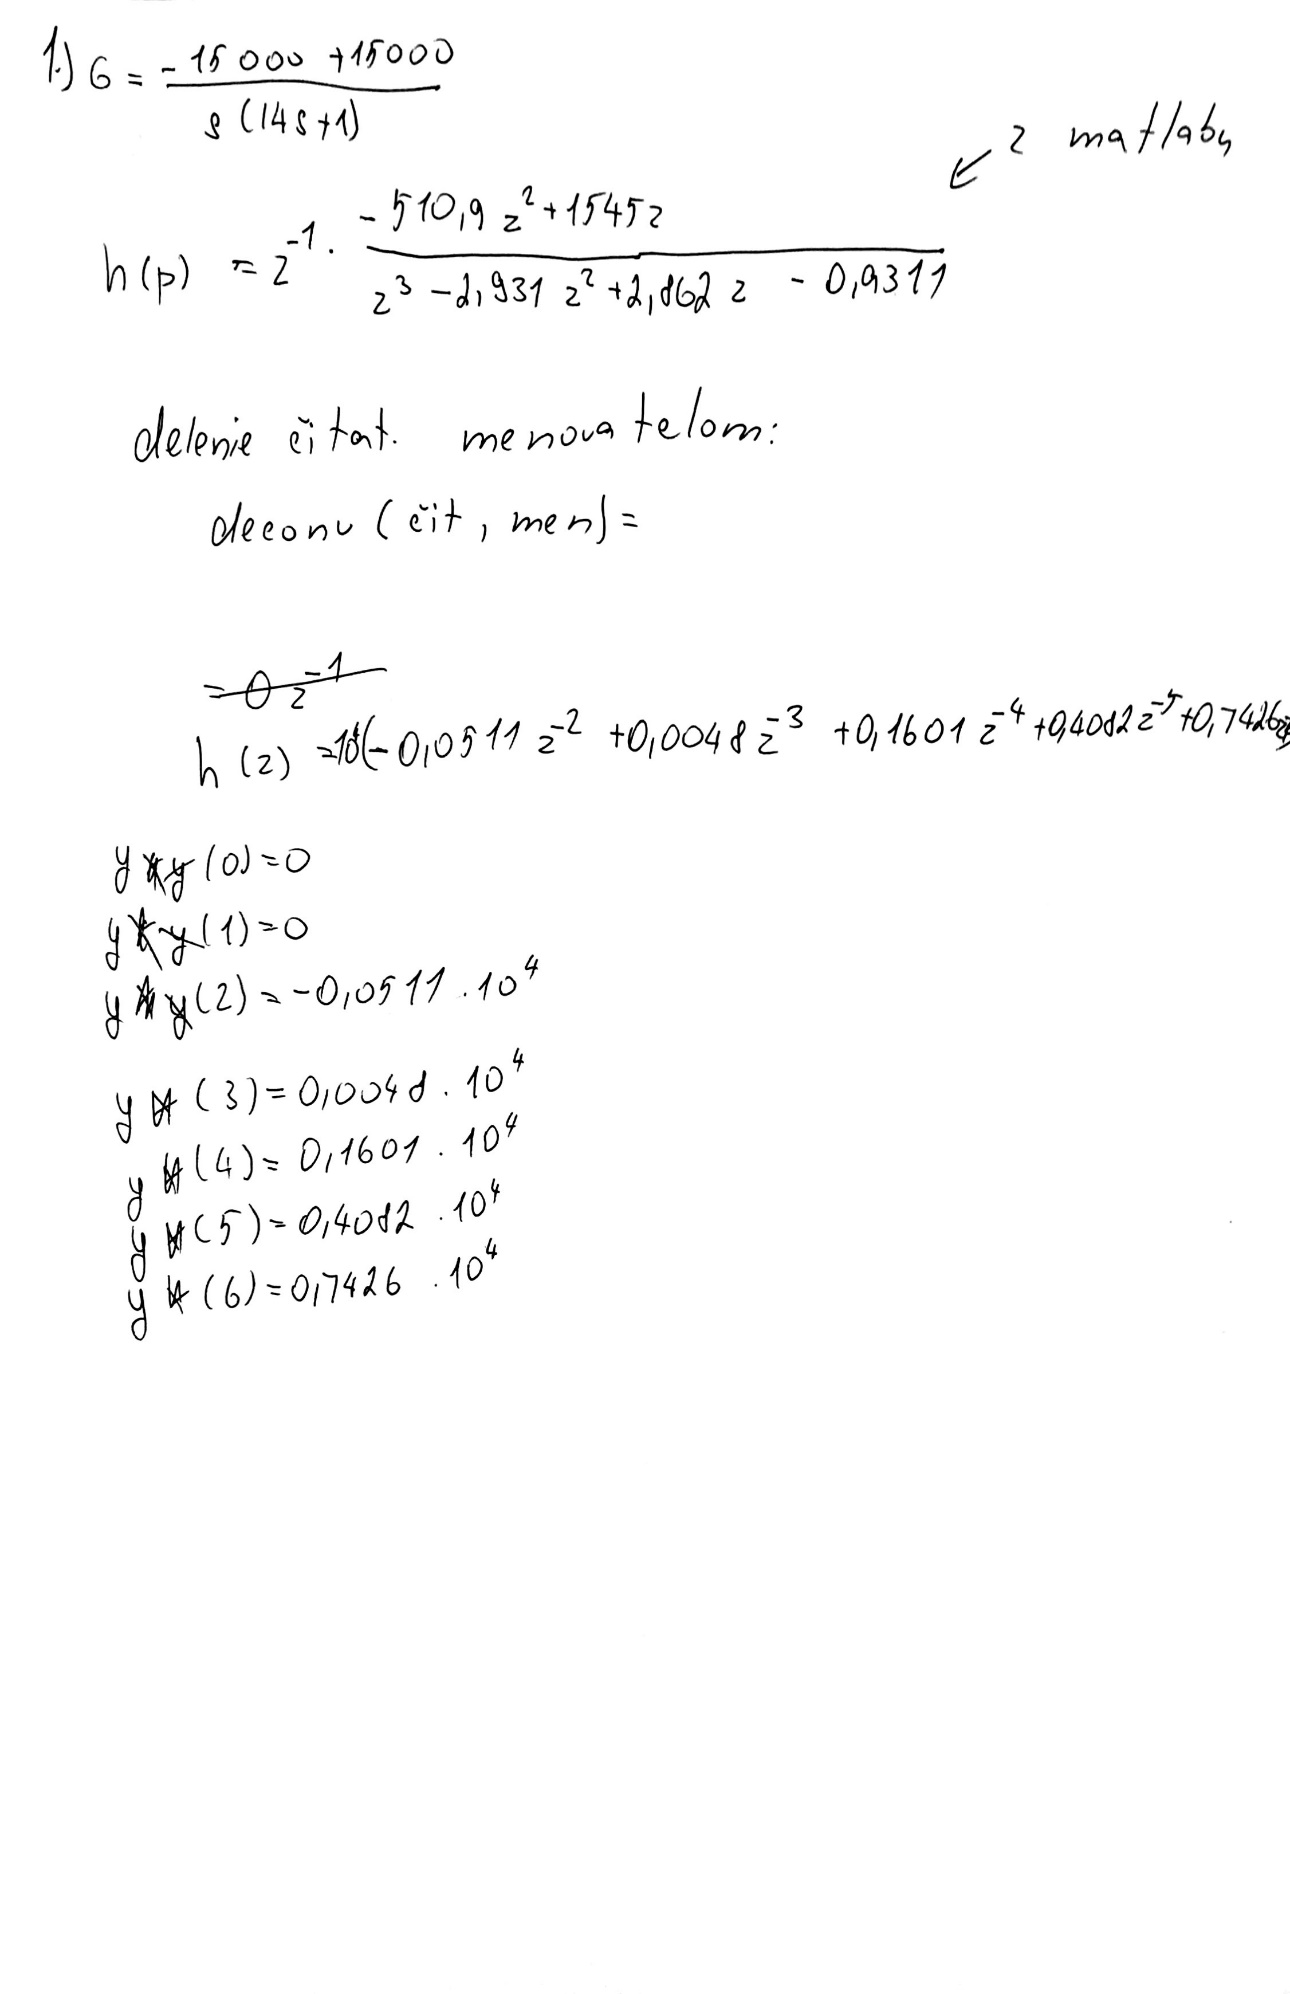 1.) G = -15 000 +15000 / s (14s+1)
z matlabu
h(p) = z^-1 . -510,9 z^2 + 1545z / z^3 - 2,931 z^2 + 2,862 z - 0,9311
delenie čitat. menovatelom:
deconv (čit, men) =
= 0 z^-1
h (z) = 10^4(-0,0511 z^-2 + 0,0048 z^-3 + 0,1601 z^-4 + 0,4082 z^-5 + 0,7426
y (0) = 0
y (1) = 0
y (2) = -0,0511 . 10^4
y (3) = 0,0048 . 10^4
y (4) = 0,1601 . 10^4
y (5) = 0,4082 . 10^4
y (6) = 0,7426 . 10^4